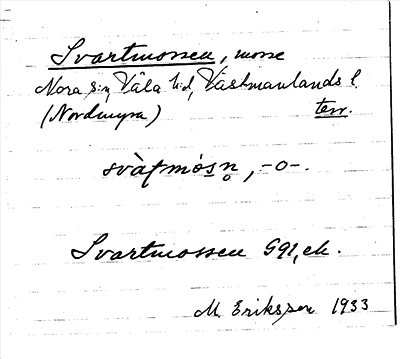 Svartmossen, mosse
Nora s:n, Våla hd, Västmanlands l.
(Nordmyra) terr.
svàtmósn̥, -o-.
Svartmossen G91, ek.
M. Eriksson 1933